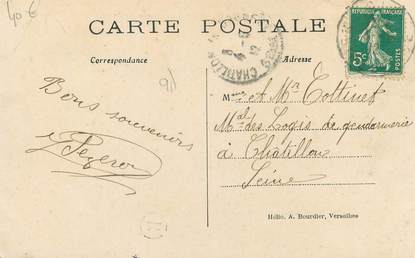 40 €
CARTE POSTALE
Correspondance
Adresse
RÉPUBLIQUE FRANÇAISE
5c
CHATILLON
91
Bons souvenirs
Mme et Mr Cottinet
Mal des Logis de gendarmerie
à Châtillon
Seine
Hélio. A. Bourdier, Versailles